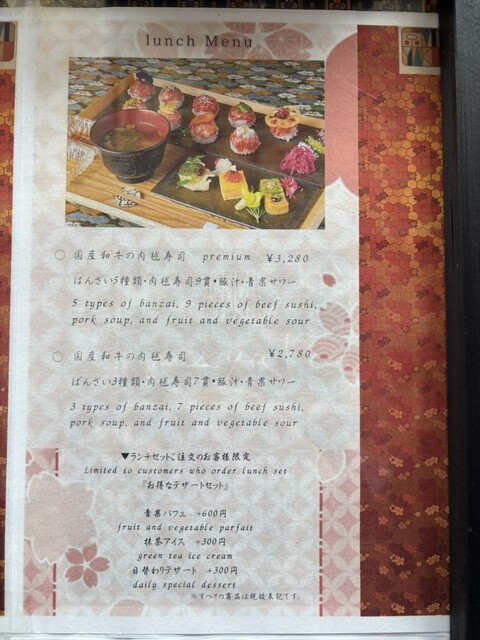 lunch Menu
○ 国産和牛の肉毬寿司 premium ¥3,280
ばんざい5種類・肉毬寿司9貫・豚汁・青果サワー
5 types of banzai, 9 pieces of beef sushi,
pork soup, and fruit and vegetable sour
○ 国産和牛の肉毬寿司 ¥2,780
ばんざい3種類・肉毬寿司7貫・豚汁・青果サワー
3 types of banzai, 7 pieces of beef sushi,
pork soup, and fruit and vegetable sour
▼ランチセットご注文のお客様限定
Limited to customers who order lunch set
『お得なデザートセット』
青果パフェ +600円
fruit and vegetable parfait
抹茶アイス +300円
green tea ice cream
日替わりデザート +300円
daily special dessert
※すべての商品は税抜表記です。